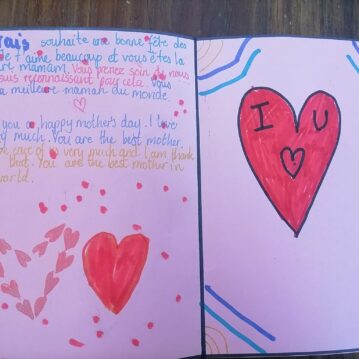 rais souhaite une bonne fête des
t'aime beaucoup et vous êtes la
mamam. Vous prenez soin de nous
suis reconnaissant pour cela. Vous
meilleure mamah du monde.
you a happy mother's day. I love
much. You are the best mother.
care of us very much and I am thank
that. You are the best mother in
world.
I U